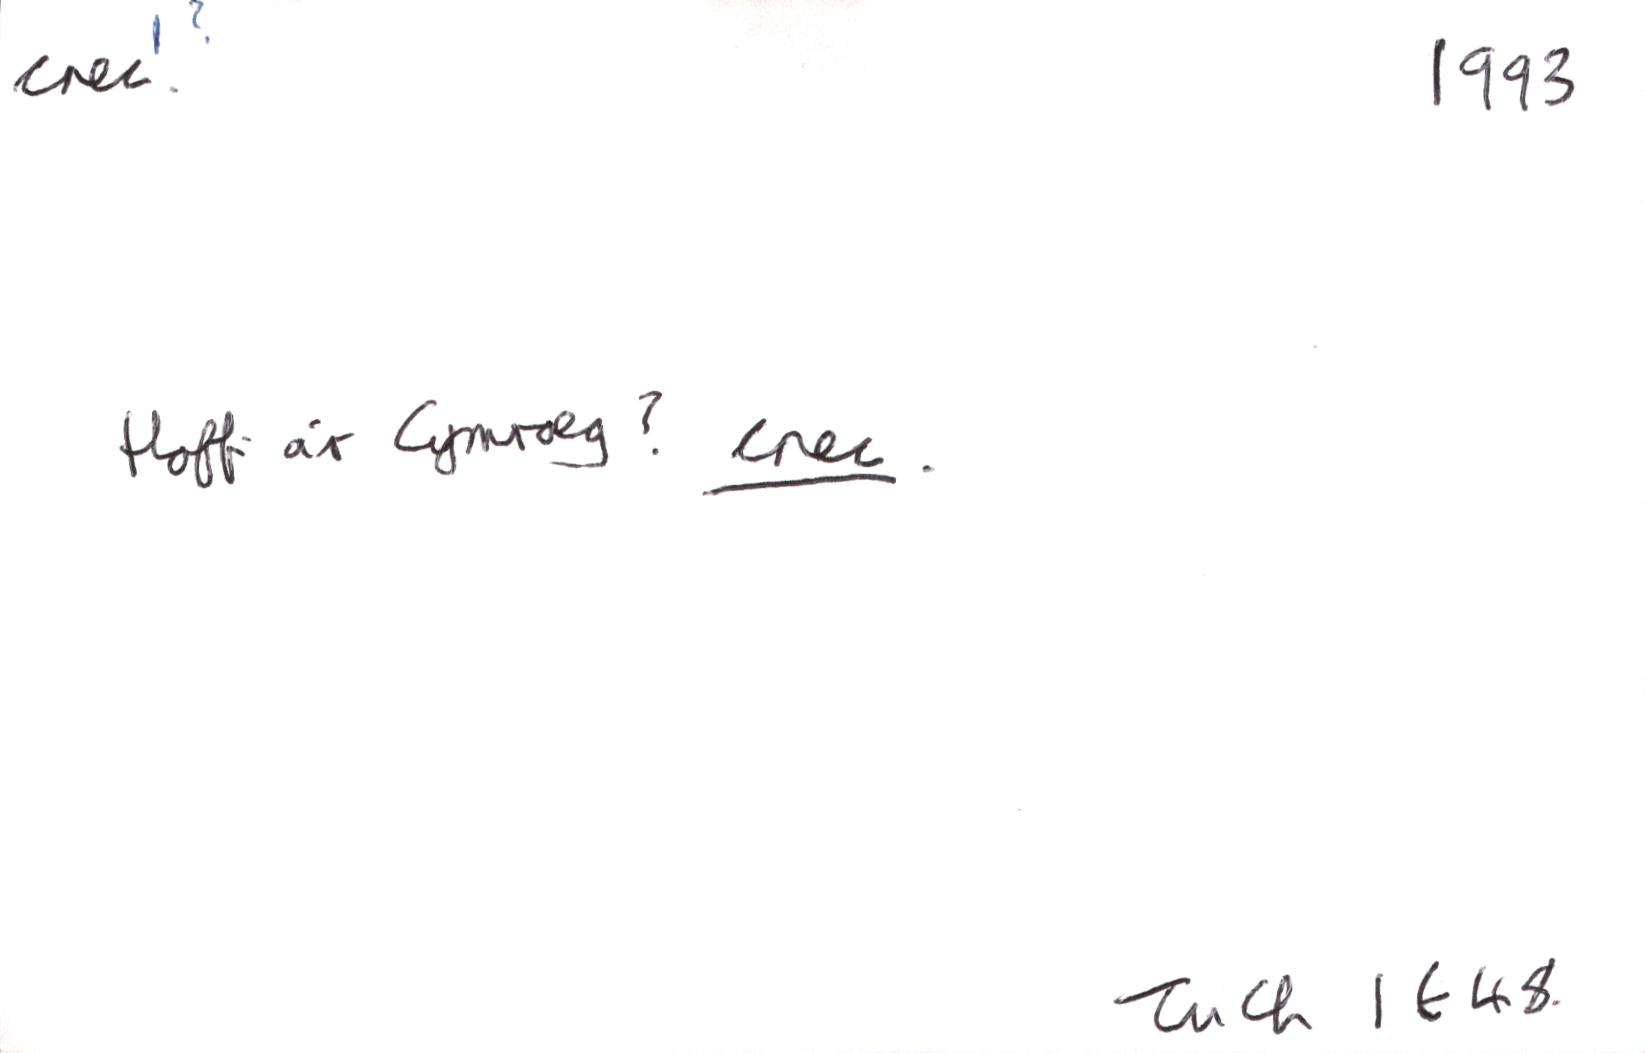 crec! ? 1993
Hoffi a'r Cymraeg? crec.
TuCh 1 t 48.